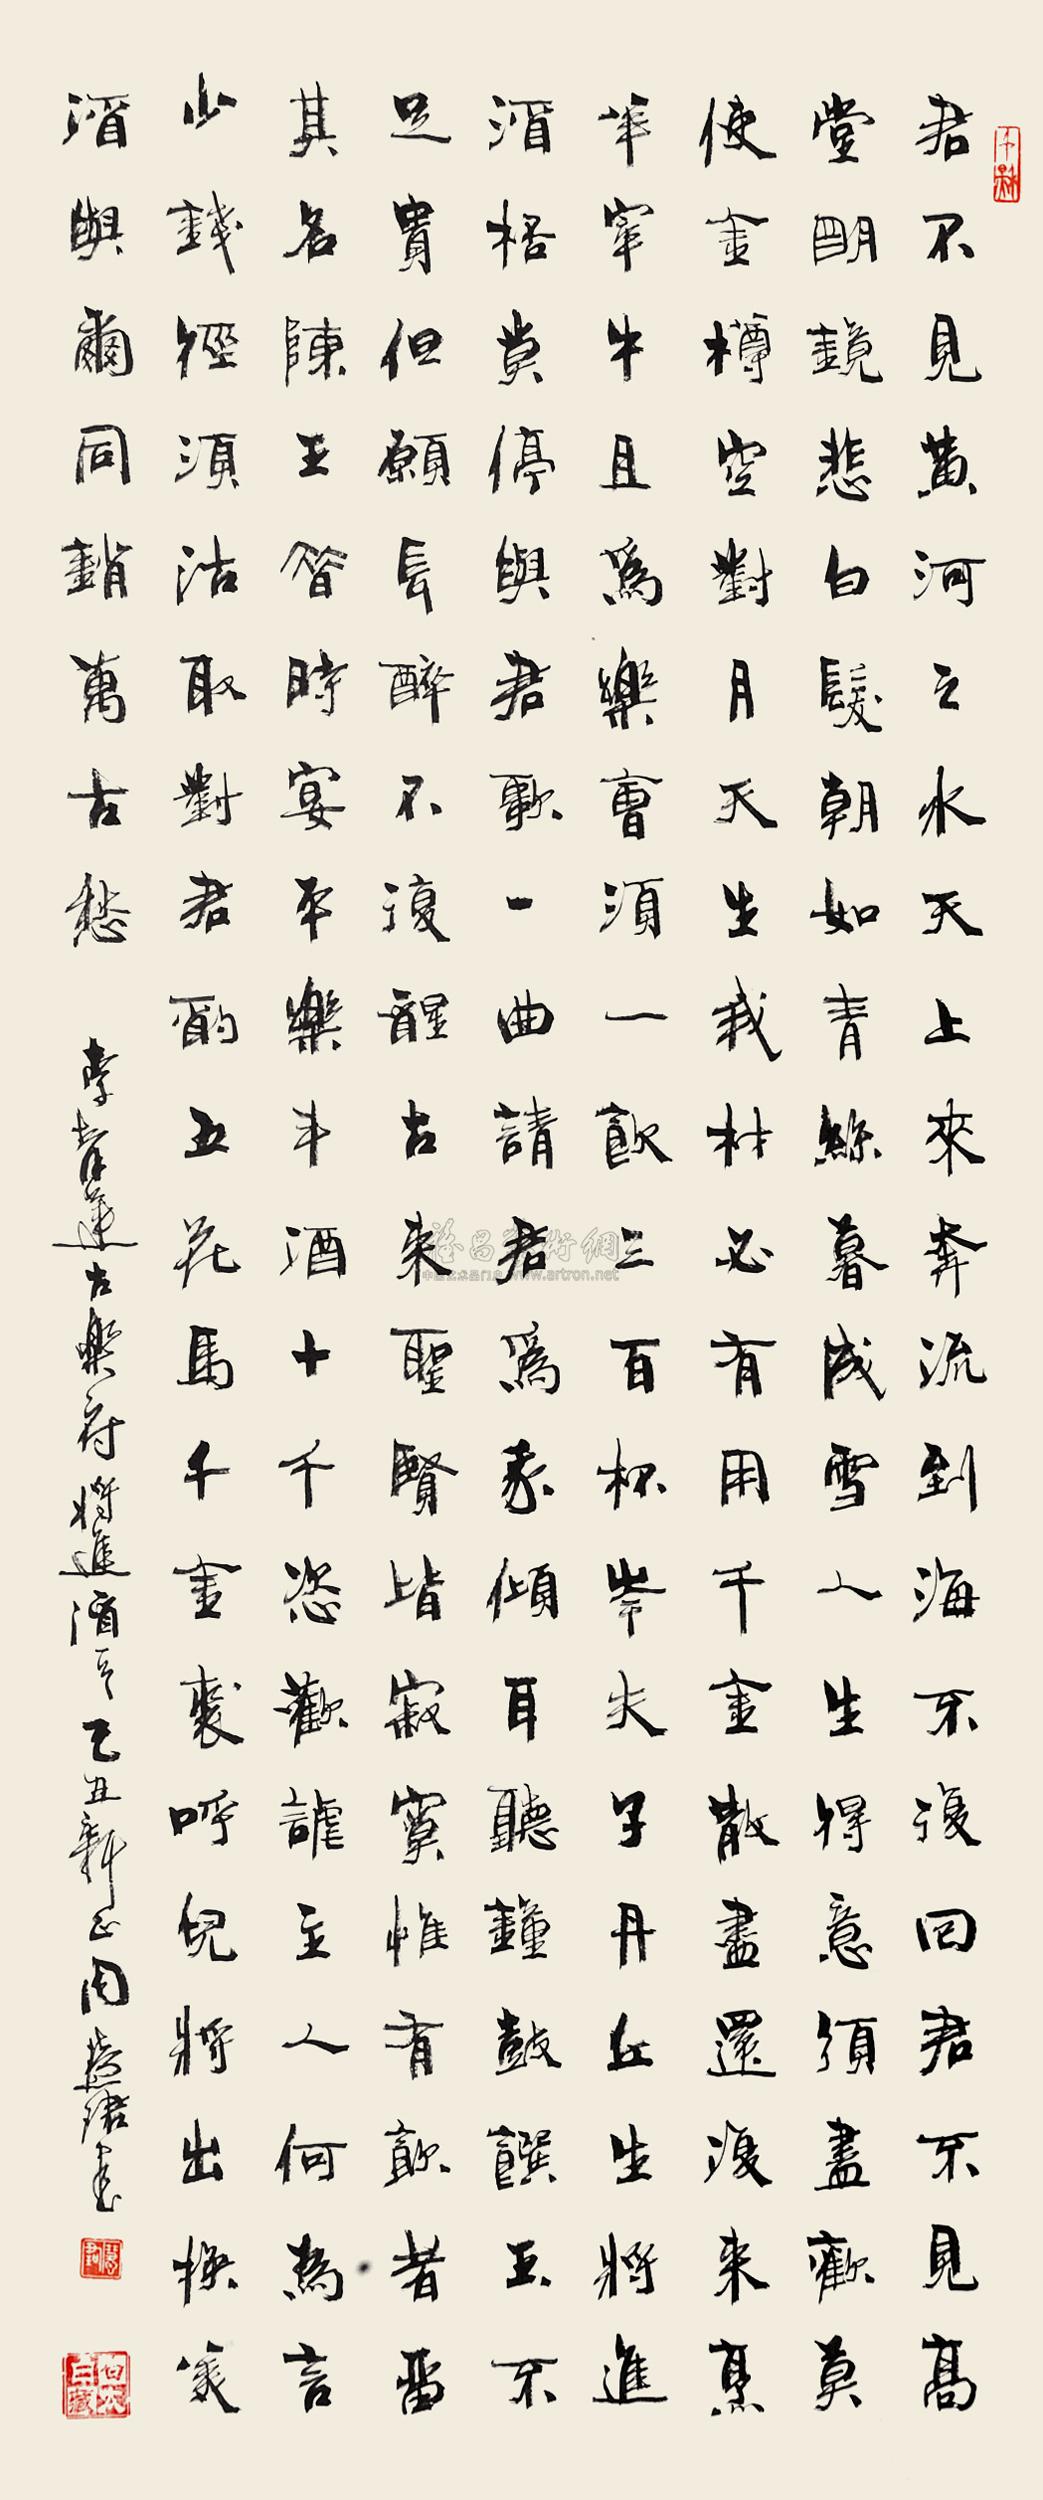 君不見黃河之水天上來奔流到海不復回君不見高
堂朙鏡悲白髮朝如青絲暮成雪人生得意須盡歡莫
使金樽空對月天生我材必有用千金散盡還復來烹
羊宰牛且爲樂會須一飲三百杯岑夫子丹丘生將進
酒桮莫停與君歌一曲請君爲我傾耳聽鐘鼓饌玉不
足貴但願長醉不復醒古來聖賢皆寂寞惟有飲者留
其名陳王昔時宴平樂斗酒十千恣歡謔主人何為言
少錢徑須沽取對君酌五花馬千金裘呼兒將出換美
酒與爾同銷萬古愁 李青蓮古樂府將進酒 己丑新正周慧珺書
雅昌藝術網
中国艺术品门户 www.artron.net